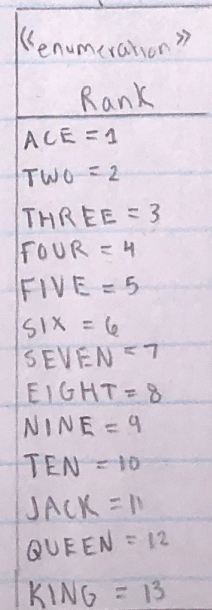 «enumeration»
Rank
ACE = 1
TWO = 2
THREE = 3
FOUR = 4
FIVE = 5
SIX = 6
SEVEN = 7
EIGHT = 8
NINE = 9
TEN = 10
JACK = 11
QUEEN = 12
KING = 13